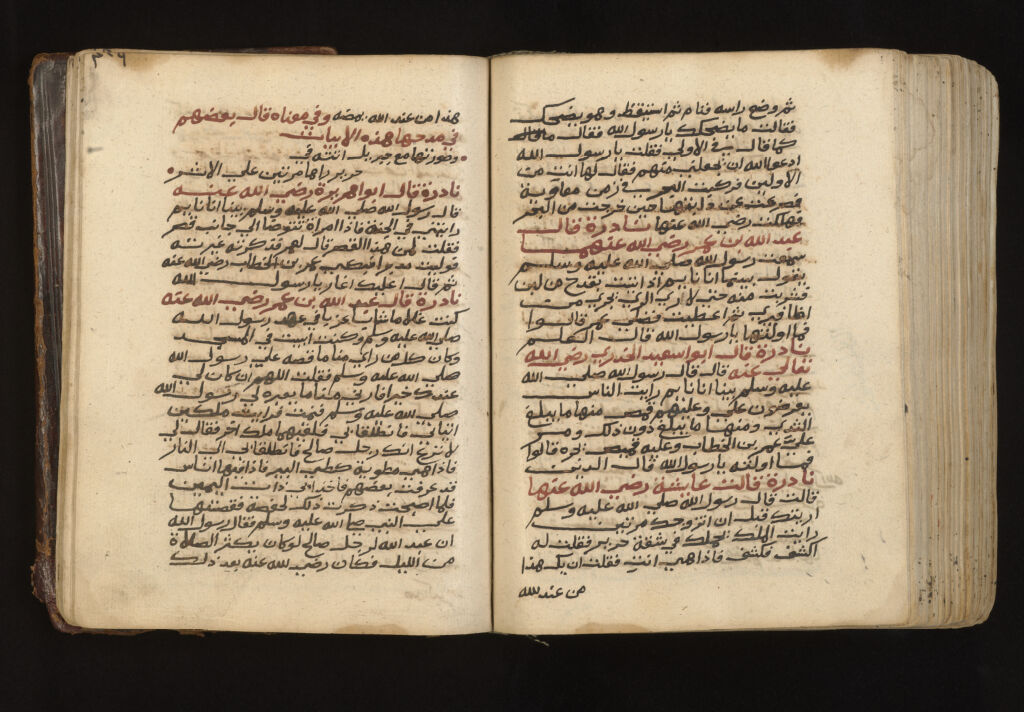 ثم وضع راسه فنام ثم استيقظ وهو يضحك
فقالت ما يضحكك يا رسول الله فقال
كما قال في الاولي فقلت يا رسول الله
ادعو الله ان يجعلني منهم فقال لها انت من
الاولين فركبت البحر في زمن معاوية
فصرعت عن دابتها حين خرجت من البحر
فهلكت رضي الله عنها نادرة قال
عبد الله بن عمر رضي الله عنهما
سمعت رسول الله صلي الله عليه وسلم
يقول بينما انا نايم اذ اتيت بقدح من لبن
فشربت منه حتي لاري الري يجري من
اظافيري ثم اعطيت فضلي عمر قالوا
فما اولتها يا رسول الله قال العلم
نادرة قال ابو اسعيد الخدري رضي الله
تعالي عنه قال قال رسول الله صلي الله
عليه وسلم بينا انا نايم رايت الناس
يعرضون علي وعليهم قمص منها ما يبلغ
الثدي ومنها ما يبلغ دون ذلك ومر
علي عمر بن الخطاب وعليه قميص يجره قالوا
فما اولته يا رسول الله قال الدين
نادرة قالت عايشة رضي الله عنها
قالت قال رسول الله صلي الله عليه وسلم
اريتك قبل ان اتزوجك مرتين
رايت الملك يحملك في شقة حرير فقلت له
اكشف فكشف فاذا هي انت فقلت ان يك هذا
من عند الله
٢٣٩
هذا من عند الله يمضه وفي معناه قال بعضهم
في مدحها هذه الابيات
وصورتها مع جبريل اتته في
حرير راها مرتين علي الاثر
نادرة قال ابو اهريرة رضي الله عنه
قال رسول الله صلي الله عليه وسلم بينا انا نايم
رايتني في الجنة فاذا امراة تتوضا الي جانب قصر
فقلت لمن هذا القصر قال لعمر فذكرت غيرته
فوليت مدبرا فبكي عمر بن الخطاب رضي الله عنه
ثم قال اعليك اغار يا رسول الله
نادرة قال عبد الله بن عمر رضي الله عنه
كنت غلاما شابا عزبا في عهد رسول الله
صلي الله عليه وسلم وكنت ابيت في المسجد
وكان كل من راي مناما قصه علي رسول الله
صلي الله عليه وسلم فقلت اللهم ان كان لي
عندك خير فارني مناما يعبره لي رسول الله
صلي الله عليه وسلم فنمت فرايت ملكين
اتيان فانطلقا بي فلقيهما ملك اخر فقال لي
لا ترع انك رجل صالح فانطلقا بي الي النار
فاذا هي مطوية كطي البير فاذا فيها اناس
قد عرفت بعضهم فاخذا بي ذات اليمين
فلما اصبحت ذكرت ذلك لحفصة فقصتها
علي النبي صلي الله عليه وسلم فقال رسول الله
ان عبد الله لرجل صالح لو كان يكثر الصلاة
من الليل فكان رضي الله عنه بعد ذلك